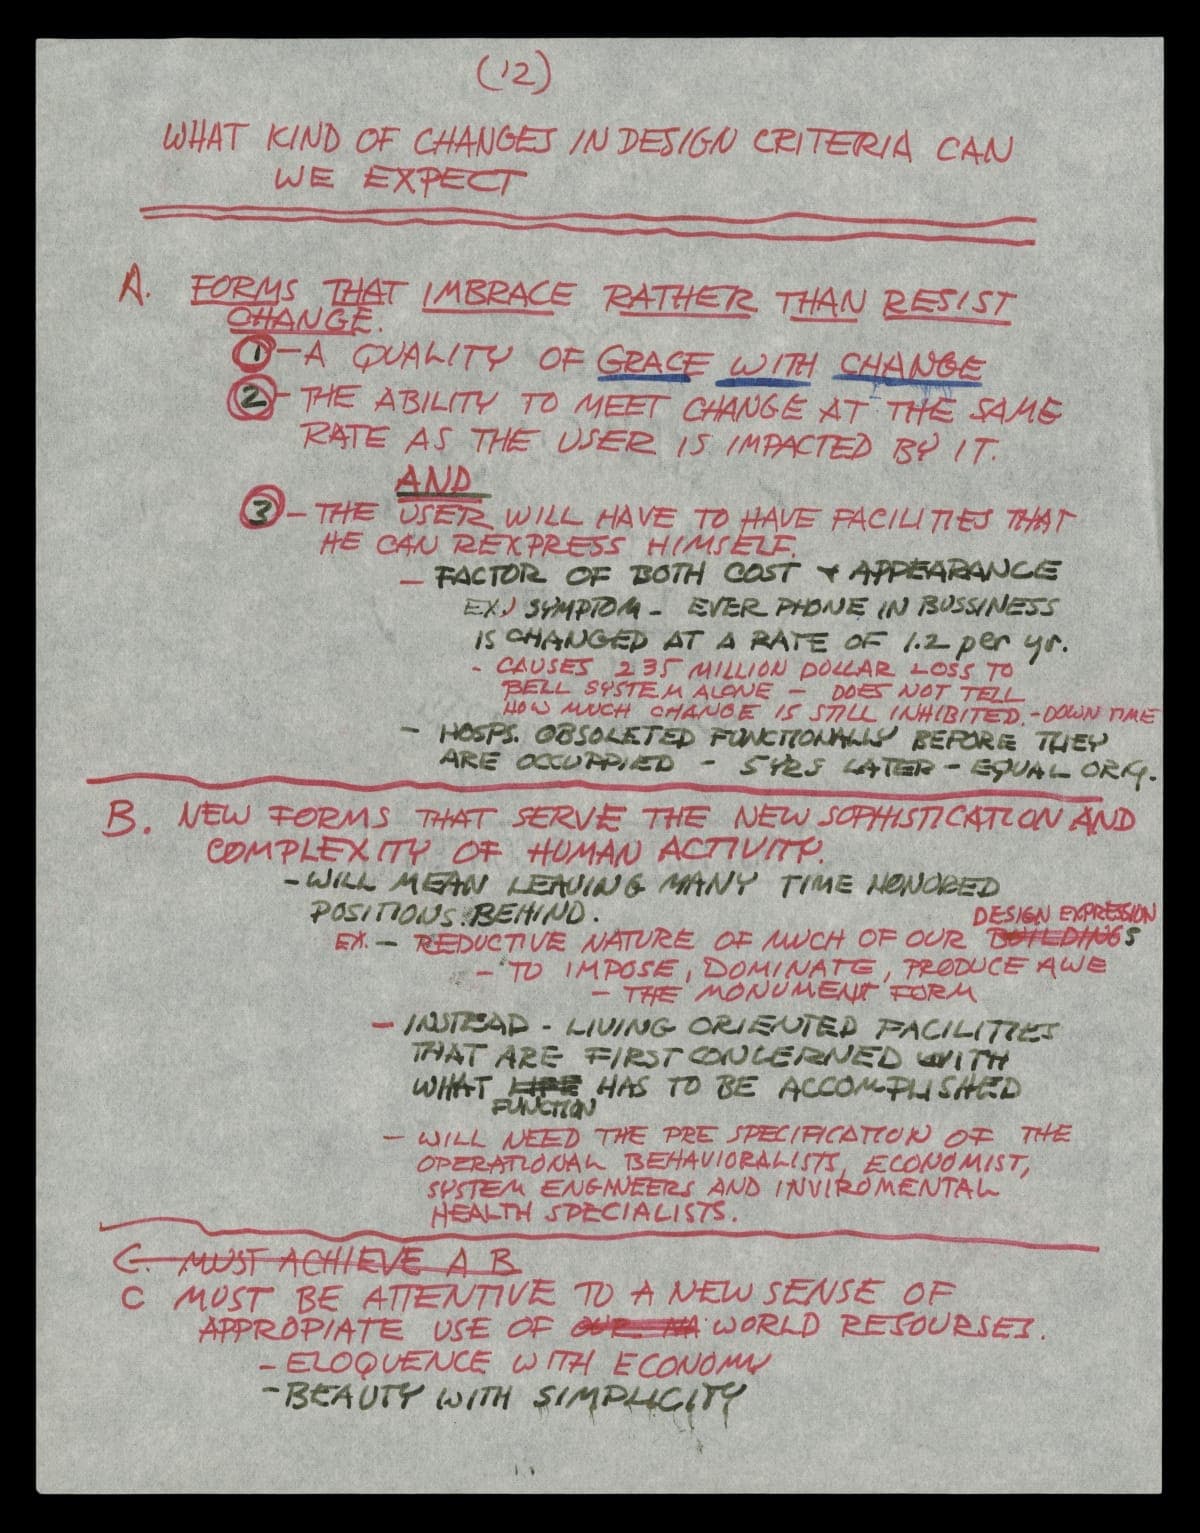 (12)
WHAT KIND OF CHANGES IN DESIGN CRITERIA CAN
WE EXPECT
A. FORMS THAT IMBRACE RATHER THAN RESIST
CHANGE.
1 - A QUALITY OF GRACE WITH CHANGE
2 - THE ABILITY TO MEET CHANGE AT THE SAME
RATE AS THE USER IS IMPACTED BY IT.
AND
3 - THE USER WILL HAVE TO HAVE FACILITIES THAT
HE CAN REXPRESS HIMSELF.
- FACTOR OF BOTH COST & APPEARANCE
EX.) SYMPTOM - EVER PHONE IN BUSSINESS
IS CHANGED AT A RATE OF 1.2 per yr.
- CAUSES 235 MILLION DOLLAR LOSS TO
BELL SYSTEM ALONE - DOES NOT TELL
HOW MUCH CHANGE IS STILL INHIBITED. - DOWN TIME
- HOSPS. OBSOLETED FUNCTIONALLY BEFORE THEY
ARE OCCUPPIED - 5 YRS LATER - EQUAL ORIG.
B. NEW FORMS THAT SERVE THE NEW SOPHISTICATION AND
COMPLEXITY OF HUMAN ACTIVITY.
- WILL MEAN LEAVING MANY TIME HONORED
POSITIONS BEHIND.
DESIGN EXPRESSION
EX. - REDUCTIVE NATURE OF MUCH OF OUR BUILDINGS
- TO IMPOSE, DOMINATE, PRODUCE AWE
- THE MONUMENT FORM
- INSTEAD - LIVING ORIENTED FACILITIES
THAT ARE FIRST CONCERNED WITH
WHAT LIFE HAS TO BE ACCOMPLISHED
FUNCTION
- WILL NEED THE PRE SPECIFICATION OF THE
OPERATIONAL BEHAVIORALISTS, ECONOMIST,
SYSTEM ENGINEERS AND INVIROMENTAL
HEALTH SPECIALISTS.
C. MUST ACHIEVE A B
C MUST BE ATTENTIVE TO A NEW SENSE OF
APPROPIATE USE OF OUR NA WORLD RESOURSES.
- ELOQUENCE WITH ECONOMY
- BEAUTY WITH SIMPLICITY